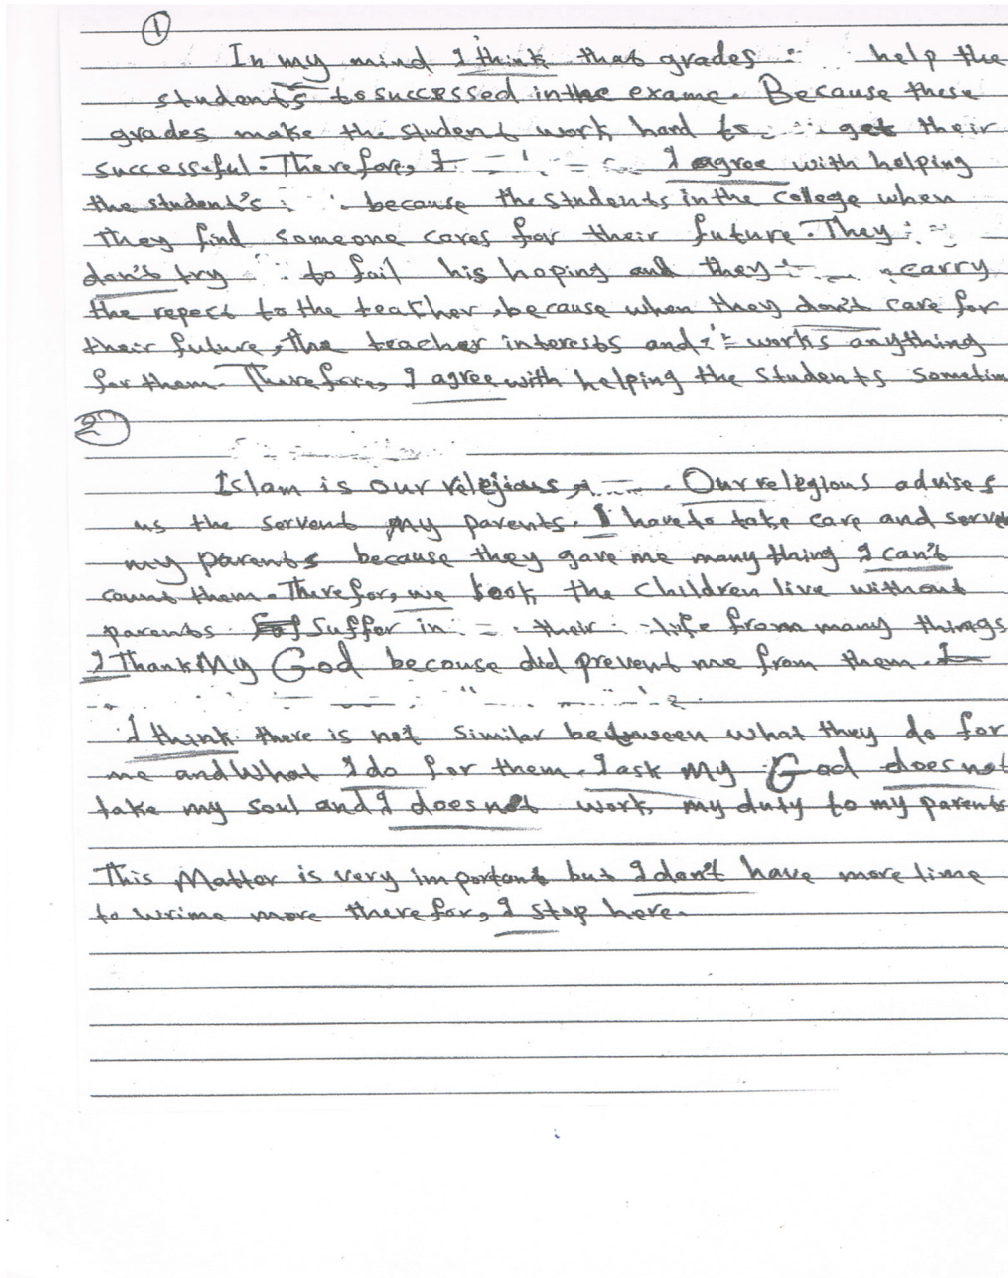 1
In my mind I think that grades help the
students to successed in the exame. Because these
grades make the student work hard to get their
successful. Therefore, I I agree with helping
the student's because the students in the college when
They find someone cares for their future. They
don't try to fail his hoping and they carry
the repect to the teacher, because when they don't care for
their future, the teacher interests and works anything
for them. Therefore, I agree with helping the students sometim
2
Islam is our relejious. Our relegious advises
us the servent my parents. I have to take care and serve
my parents because they gave me many thing I can't
count them. Therefor, we look the children live without
parents suffer in their life from many things
I Thank My God because did prevent me from them. I
I think there is not similar between what they do for
me and What I do for them. I ask My God does not
take my soul and I does not work my duty to my parents
This Matter is very important but I don't have more time
to wrime more therefor, I stop here.